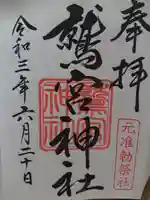 奉拝
元准勅祭社
鷲宮神社
令和三年六月二十日